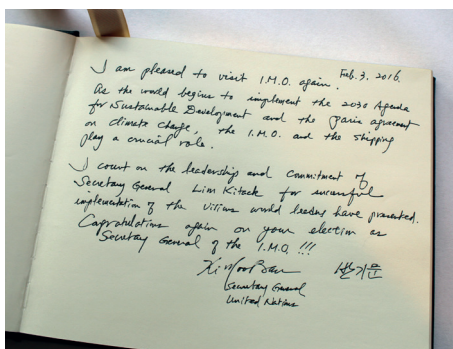 Feb. 3, 2016.
I am pleased to visit I.M.O. again.
As the world begins to implement the 2030 Agenda
for Sustainable Development and the Paris agreement
on climate change, the I.M.O. and the shipping
play a crucial role.
I count on the leadership and commitment of
Secretary General Lim Kitack for successful
implementation of the visions world leaders have presented.
Congratulations again on your election as
Secretary General of the I.M.O. !!!
Ki Moon Ban 반기문
Secretary General
United Nations